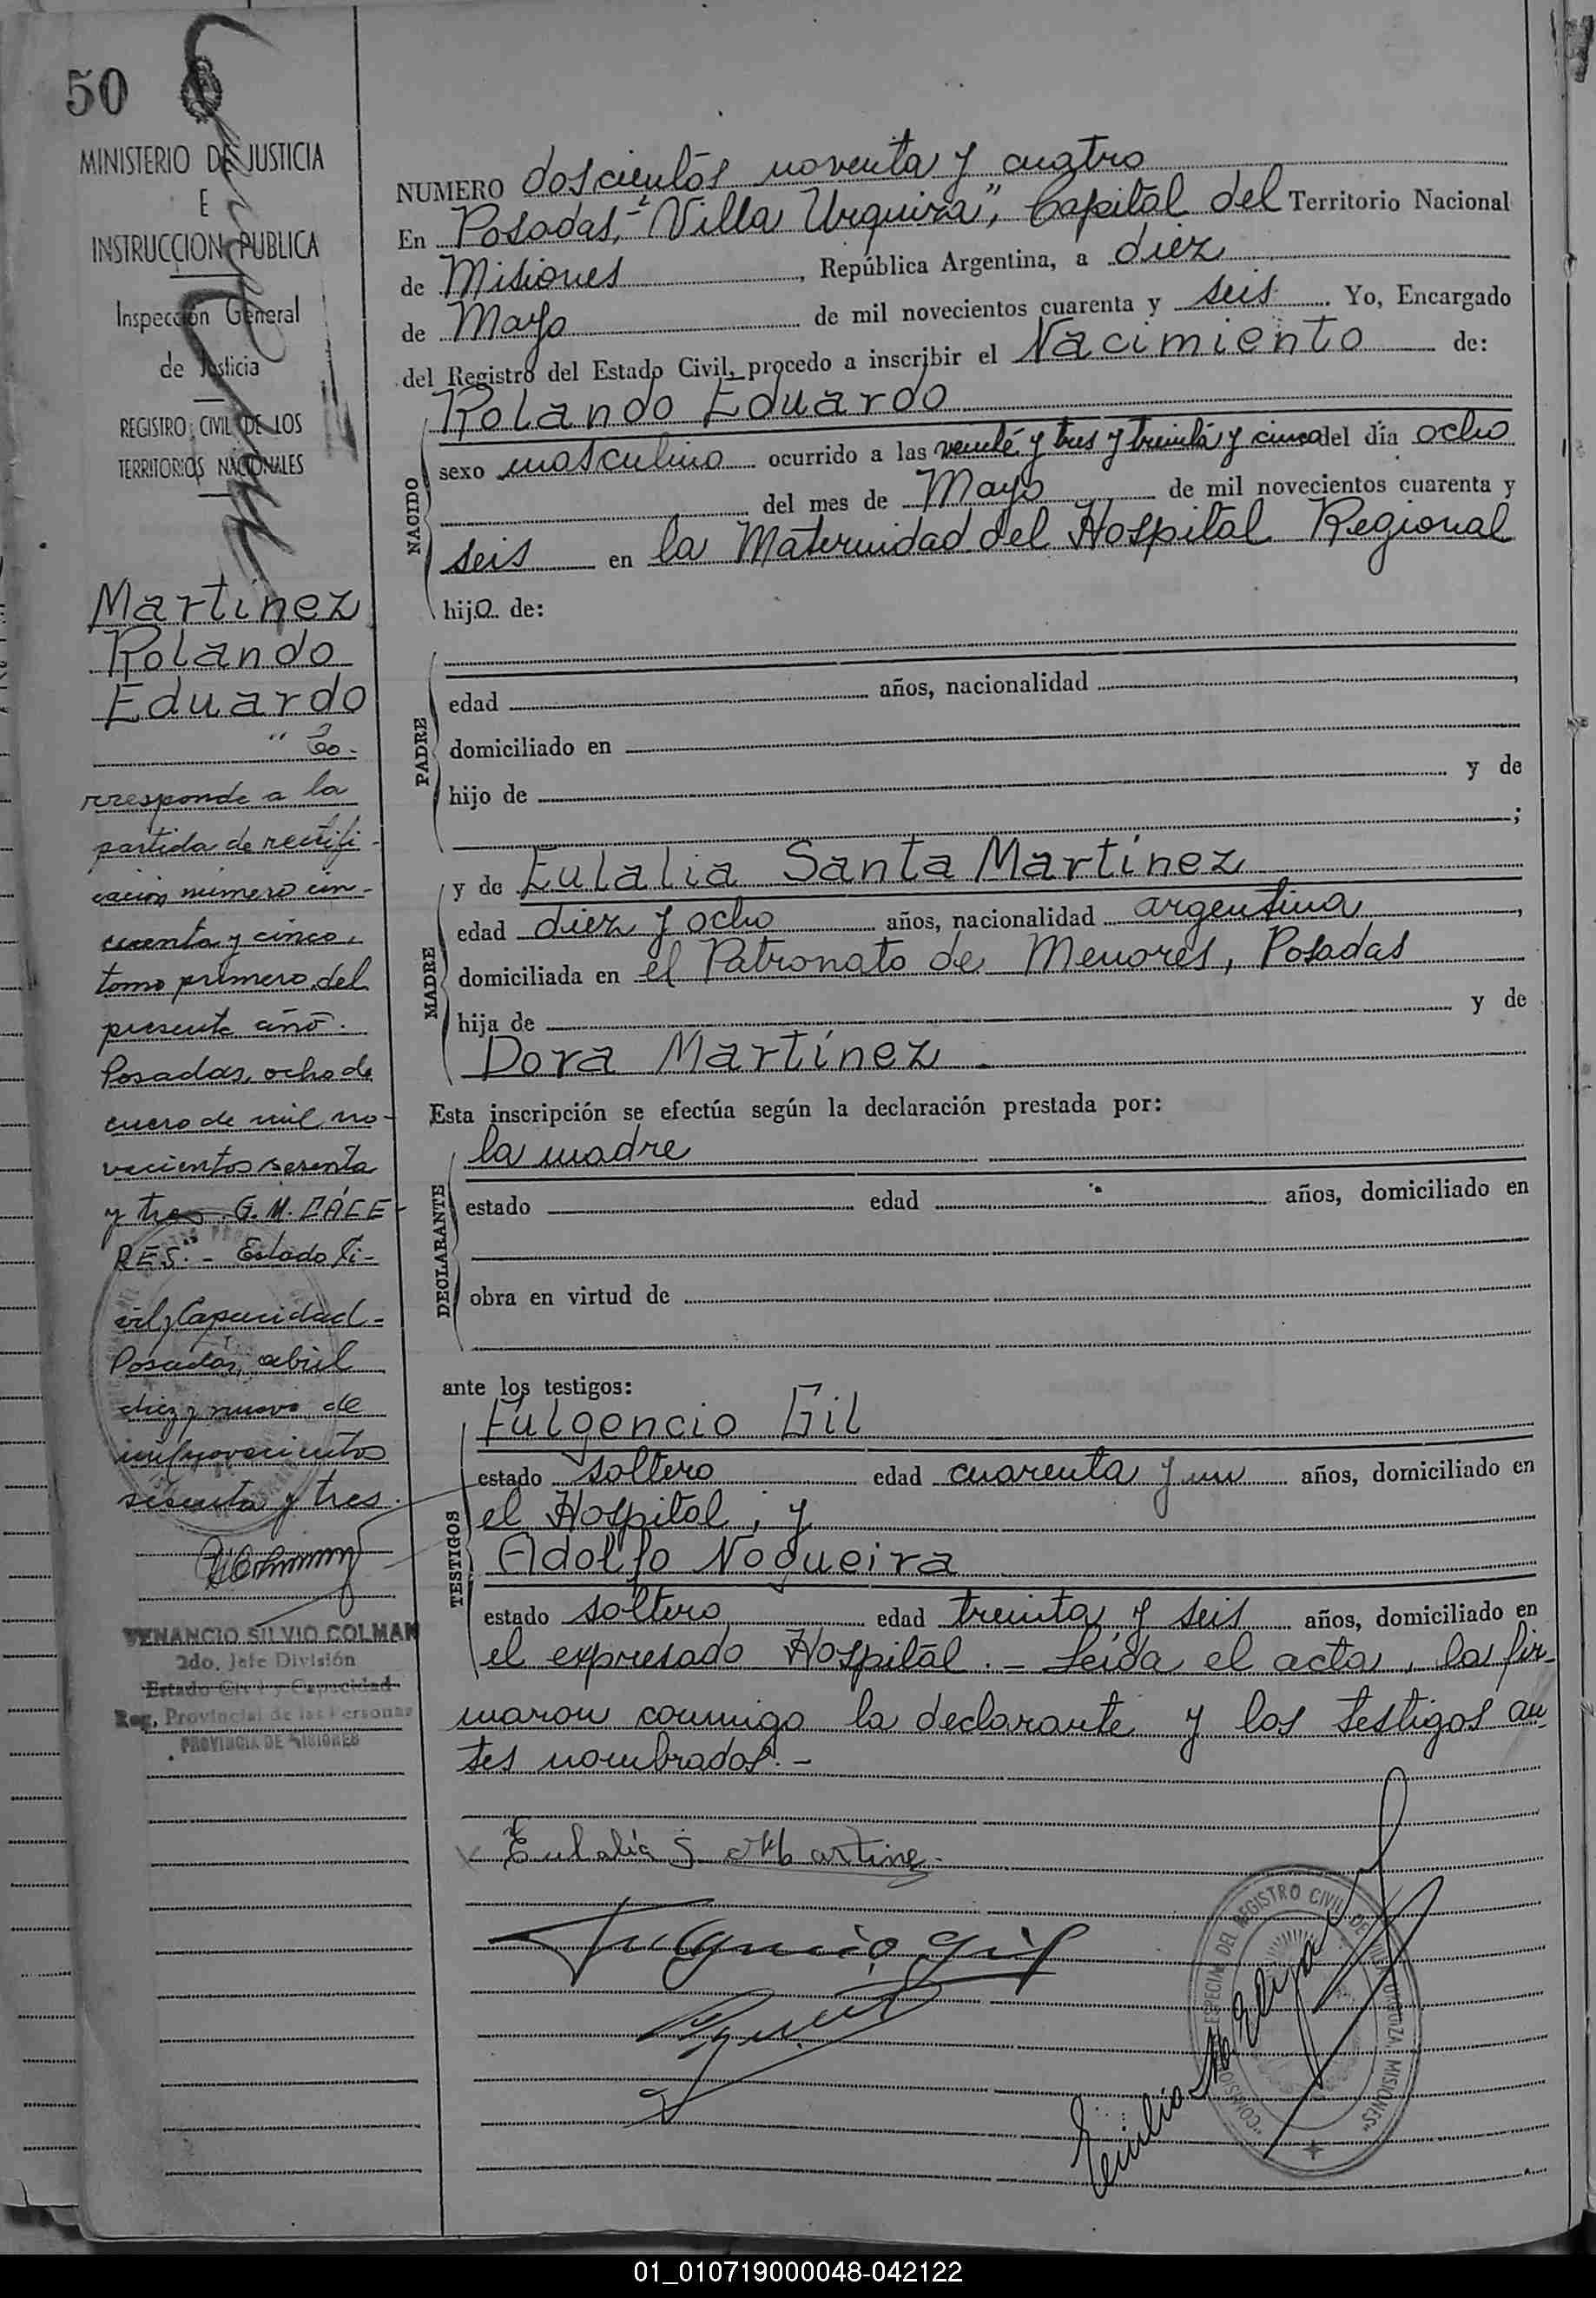 50
MINISTERIO DE JUSTICIA
E
INSTRUCCION PUBLICA
Inspección General
de Justicia
REGISTRO CIVIL DE LOS
TERRITORIOS NACIONALES
Martinez
Rolando
Eduardo
" Co-
rresponde a la
partida de rectifi-
cación número cin-
cuenta y cinco,
tomo primero del
presente año.
Posadas, ocho de
enero de mil no-
vecientos sesenta
y tres. G. M. CÁCE-
RES". - Estado Ci-
vil y Capacidad -
Posadas, abril
diez y nueve de
mil novecientos
sesenta y tres.
VENANCIO SILVIO COLMAN
2do. Jefe División
Estado Civil y Capacidad
Reg. Provincial de las Personas
PROVINCIA DE MISIONES
NUMERO doscientos noventa y cuatro
En Posadas, "Villa Urquiza", Capital del Territorio Nacional
de Misiones, República Argentina, a diez
de Mayo de mil novecientos cuarenta y seis. Yo, Encargado
del Registro del Estado Civil, procedo a inscribir el Nacimiento de:
Rolando Eduardo
NACIDO
sexo masculino ocurrido a las veinte y tres y treinta y cinco del día ocho
del mes de Mayo de mil novecientos cuarenta y
seis en la Maternidad del Hospital Regional
hijo de:
PADRE
edad años, nacionalidad ,
domiciliado en
hijo de y de
;
MADRE
y de Eulalia Santa Martinez
edad diez y ocho años, nacionalidad argentina,
domiciliada en el Patronato de Menores, Posadas
hija de y de
Dora Martínez.
Esta inscripción se efectúa según la declaración prestada por:
DECLARANTE
la madre
estado edad años, domiciliado en
obra en virtud de
ante los testigos:
TESTIGOS
Fulgencio Gil
estado soltero edad cuarenta y un años, domiciliado en
el Hospital, y
Adolfo Nogueira
estado soltero edad treinta y seis años, domiciliado en
el expresado Hospital. - Leída el acta, la fir-
maron conmigo la declarante y los testigos an-
tes nombrados. -
Eulalia S. Martinez
Fulgencio Gil
COMISION ESPECIAL DEL REGISTRO CIVIL DE VILLA URQUIZA, MISIONES
Emilio
01_010719000048-042122